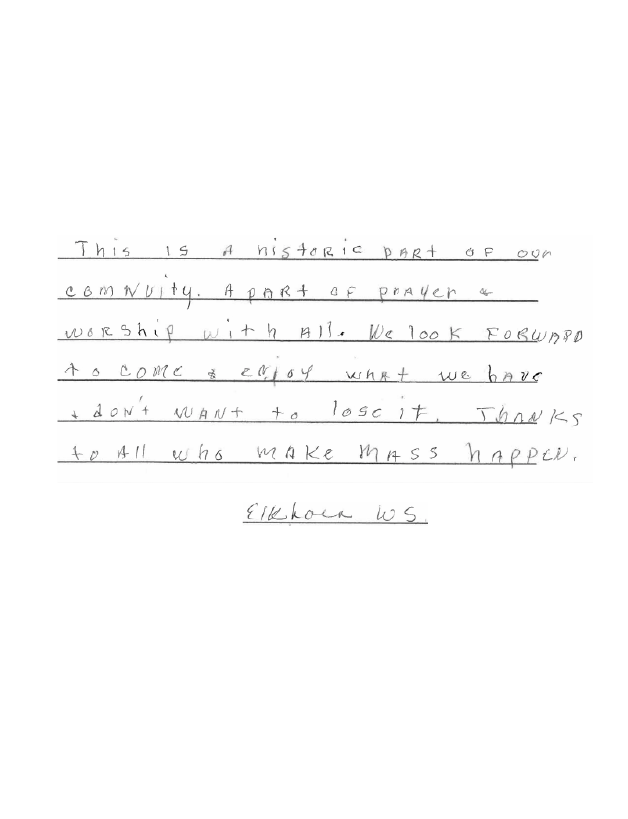 This is A historic pARt oF our
comNuity. A pARt oF prayer &
worship with All. We look FORWARD
to come & enjoy whAt we hAve
& don't wANt to lose it. ThANKS
to All who mAKe MASS hAppeN.
Elkhorn WS.